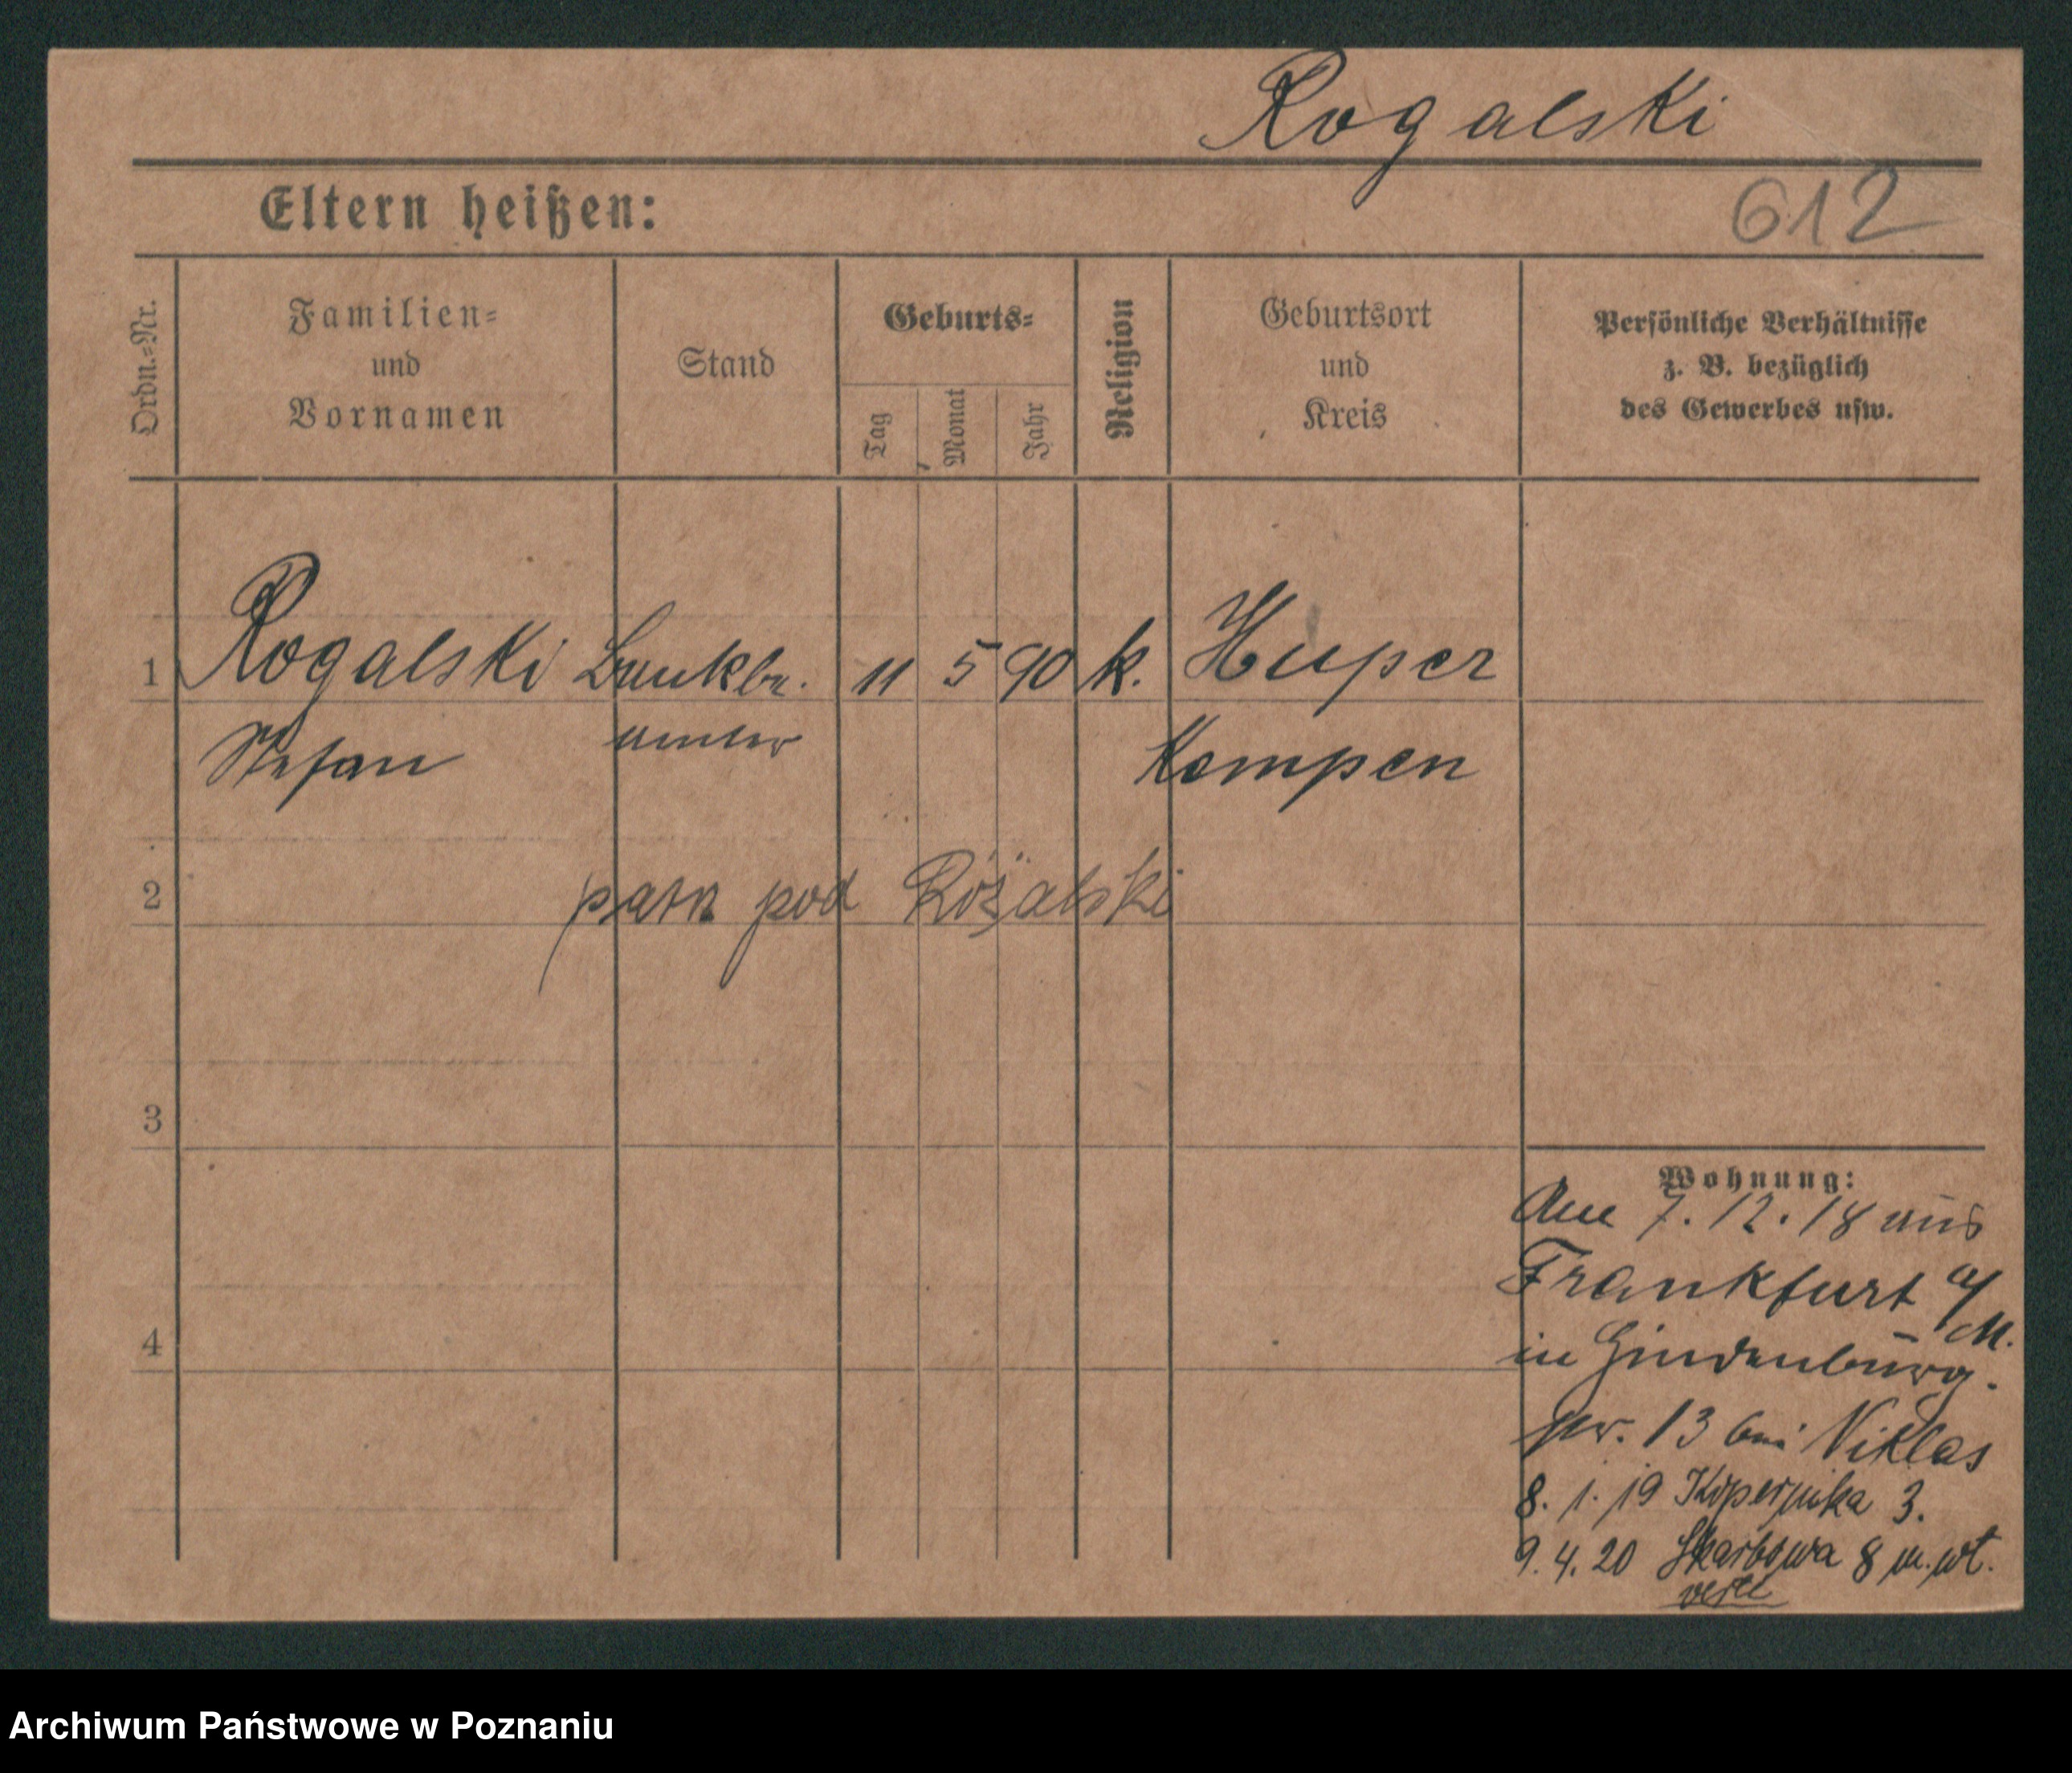 Rogalski
612
Eltern heißen:
Ordn.=Nr.
Familien=
und
Vornamen
Stand
Geburts=
Tag
Monat
Jahr
Religion
Geburtsort
und
Kreis
Persönliche Verhältnisse
z. B. bezüglich
des Gewerbes usw.
1 Rogalski Bankbe. 11 5 90 k. Huper
Stefan amter Kempen
2 patrz pod Różalski
3
4
Wohnung:
Am 7. 12. 18 aus
Frankfurt a/M.
in Hindenburg.
str. 13 bei Niklas
8. 1. 19 Kopernika 3.
9. 4. 20 Skarbowa 8 m. wt.
Archiwum Państwowe w Poznaniu